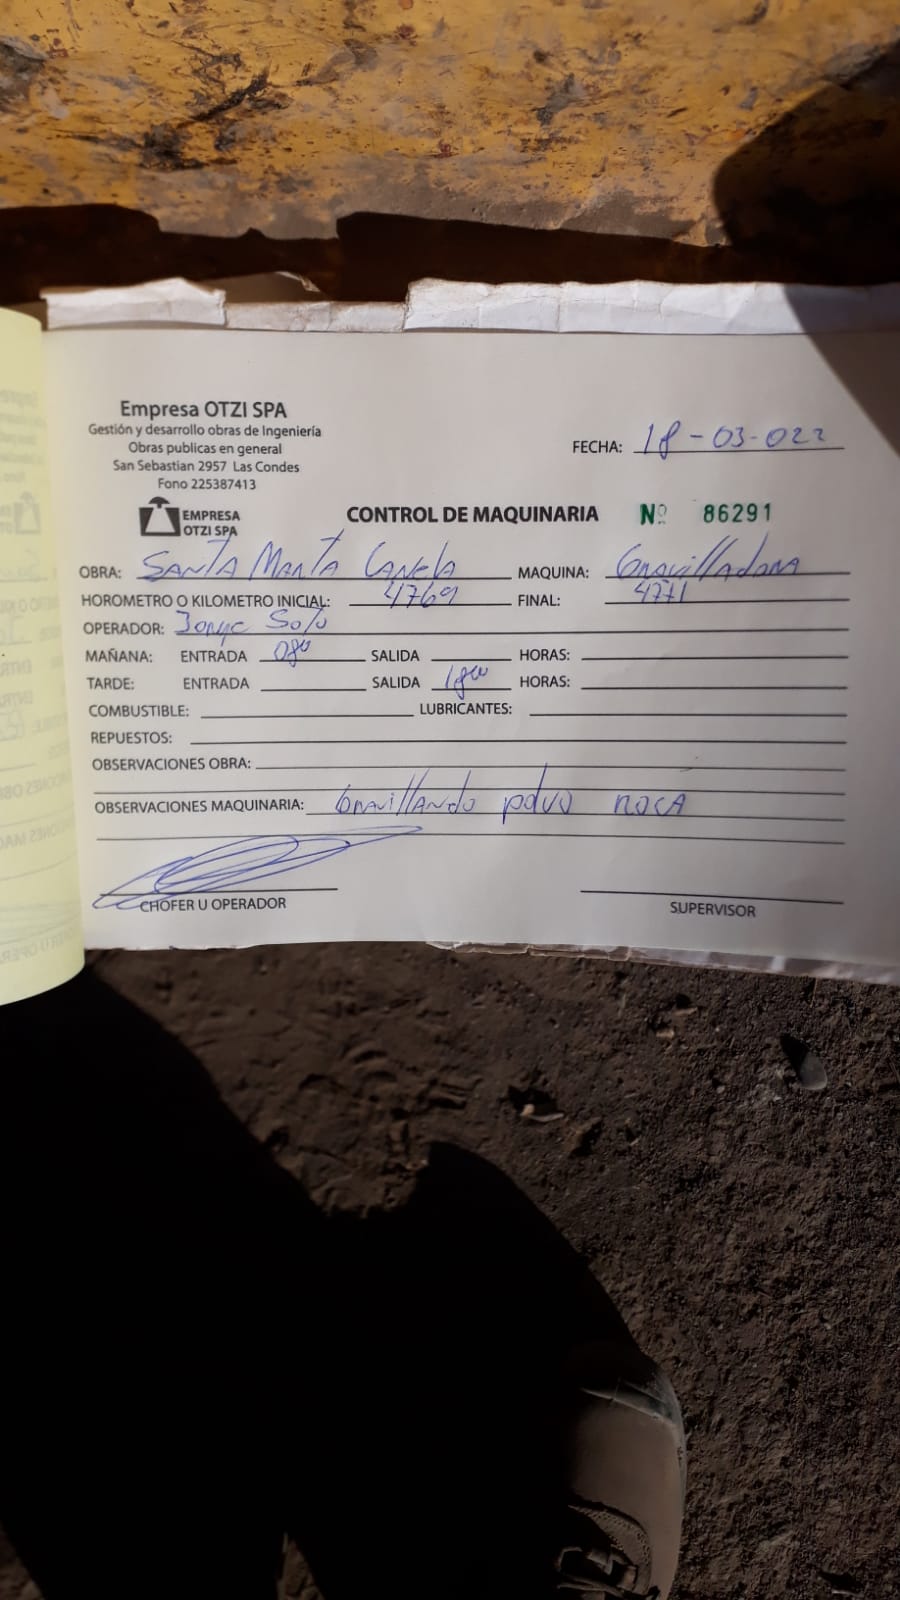 Empresa OTZI SPA
Gestión y desarrollo obras de Ingeniería
Obras publicas en general
San Sebastian 2957 Las Condes
Fono 225387413
FECHA: 18-03-022
EMPRESA
OTZI SPA
CONTROL DE MAQUINARIA Nº 86291
OBRA: SANTA MARTA CANELA MAQUINA: Gravilladora
HOROMETRO O KILOMETRO INICIAL: 4769 FINAL: 4771
OPERADOR: Jorge Soto
MAÑANA: ENTRADA 0800 SALIDA HORAS:
TARDE: ENTRADA SALIDA 1800 HORAS:
COMBUSTIBLE: LUBRICANTES:
REPUESTOS:
OBSERVACIONES OBRA:
OBSERVACIONES MAQUINARIA: Gravillando polvo roca
CHOFER U OPERADOR
SUPERVISOR